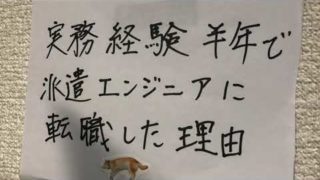 実務経験半年で
派遣エンジニアに
転職した理由